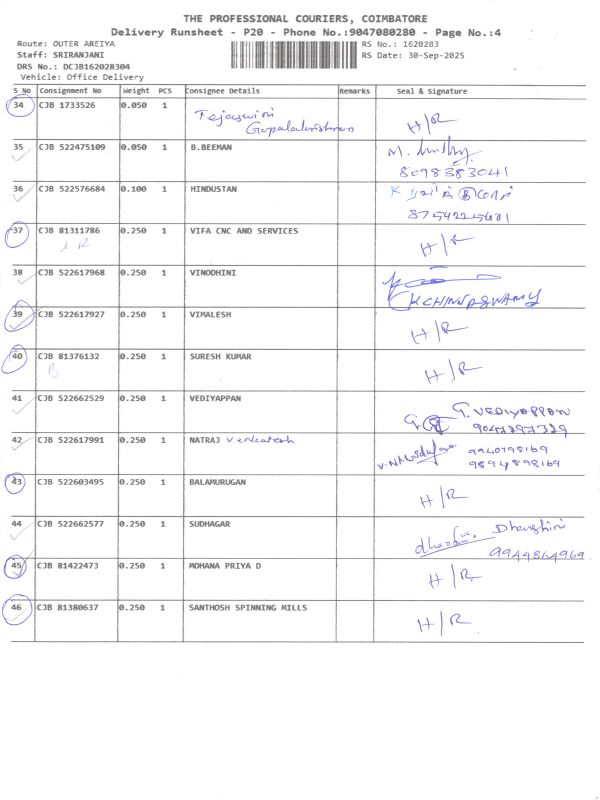 THE PROFESSIONAL COURIERS, COIMBATORE
Delivery Runsheet - P20 - Phone No.:9047080280 - Page No.:4
Route: OUTER AREIYA RS No.: 1620283
Staff: SRIRANJANI RS Date: 30-Sep-2025
DRS No.: DCJB162028304
Vehicle: Office Delivery
S No Consignment No Weight PCS Consignee Details Remarks Seal & Signature
34 CJB 1733526 0.050 1 Tejaswini Gopalakrishnan H/R
35 CJB 522475109 0.050 1 B.BEEMAN
8098383041
36 CJB 522576684 0.100 1 HINDUSTAN
8754225681
37 CJB 81311786 0.250 1 VIFA CNC AND SERVICES H/R
38 CJB 522617968 0.250 1 VINODHINI
KCHINNASWAMY
39 CJB 522617927 0.250 1 VIMALESH H/R
40 CJB 81376132 0.250 1 SURESH KUMAR H/R
B
41 CJB 522662529 0.250 1 VEDIYAPPAN G. VEDIYAPPAN
9047897329
42 CJB 522617991 0.250 1 NATRAJ Venkatesh 9940798169
9894898169
43 CJB 522603495 0.250 1 BALAMURUGAN H/R
44 CJB 522662577 0.250 1 SUDHAGAR Dharshini
9944864969
45 CJB 81422473 0.250 1 MOHANA PRIYA D H/R
46 CJB 81380637 0.250 1 SANTHOSH SPINNING MILLS H/R